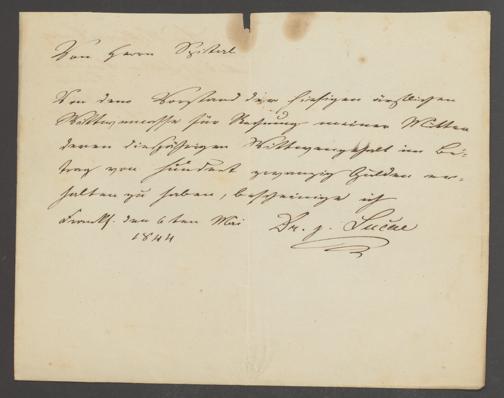 Von Herrn Spital
Von dem Vorstand der hiesigen ärztlichen
Wittwencasse für Rechnung meiner Mutter
deren diesjährigen Wittwengehalt im Be-
trag von hundert zwanzig Gulden er-
halten zu haben, bescheinige ich
Frankf. den 6ten Mai
1844
Dr. J. Lucae